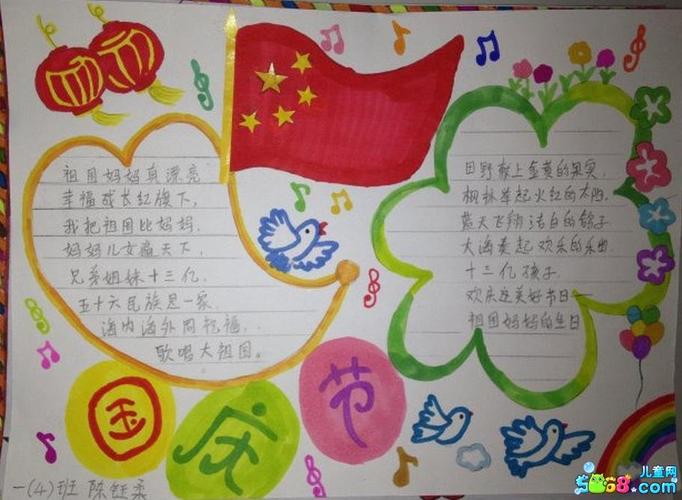 祖国妈妈真漂亮
幸福成长红旗下,
我把祖国比妈妈.
妈妈儿女遍天下,
兄弟姐妹十三亿.
五十六民族是一家.
海内海外同祝福.
歌唱大祖国。
田野献上金黄的果实,
枫林举起火红的太阳.
蓝天飞翔洁白的鸽子
大海奏起欢乐的乐曲
十三亿孩子
欢庆这美好节日
祖国妈妈的生日
国庆节
一(4)班 陈钰柔
儿童网
5068.com